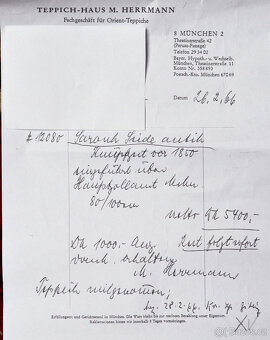 TEPPICH-HAUS M. HERRMANN
Fachgeschäft für Orient-Teppiche
8 MÜNCHEN 2
Theatinerstraße 42
(Perusa-Passage)
Telefon 29 34 02
Bayer. Hypoth.- u. Wechselb.
München, Theatinerstraße 11
Konto Nr. 398 693
Postsch.-Kto. München 670 69
Datum 26.2.66
# 12080 Sarouk Seide antik
Knüpfzeit vor 1850
eingeführt über
Hauptzollamt
netto 5400,-
1000,- Anz. folgt sofort
erhalten
M. Herrmann
Teppich mitgenommen,
28.2.66
Erfüllungsort und Gerichtsstand ist München. Die Ware bleibt bis zur restlosen Bezahlung unser Eigentum.
Reklamationen können nur innerhalb 8 Tagen vorgebracht werden.